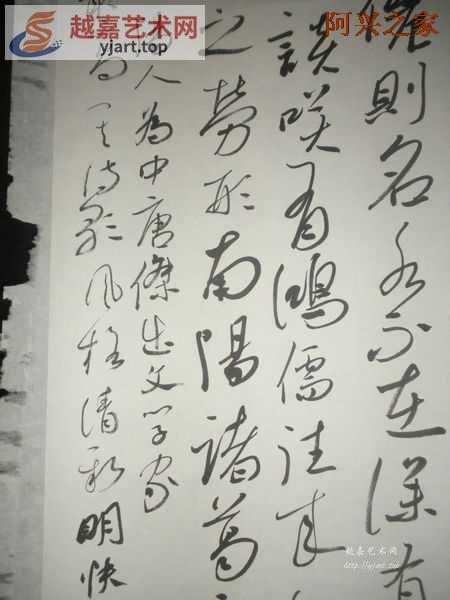 越嘉艺术网
yjart.top
阿兴之家
則名水不在深有
談笑有鴻儒往来
之勞形南陽諸葛
人為中唐傑出文学家
其诗歌风格清新明快
越嘉艺术网
http://yjart.top